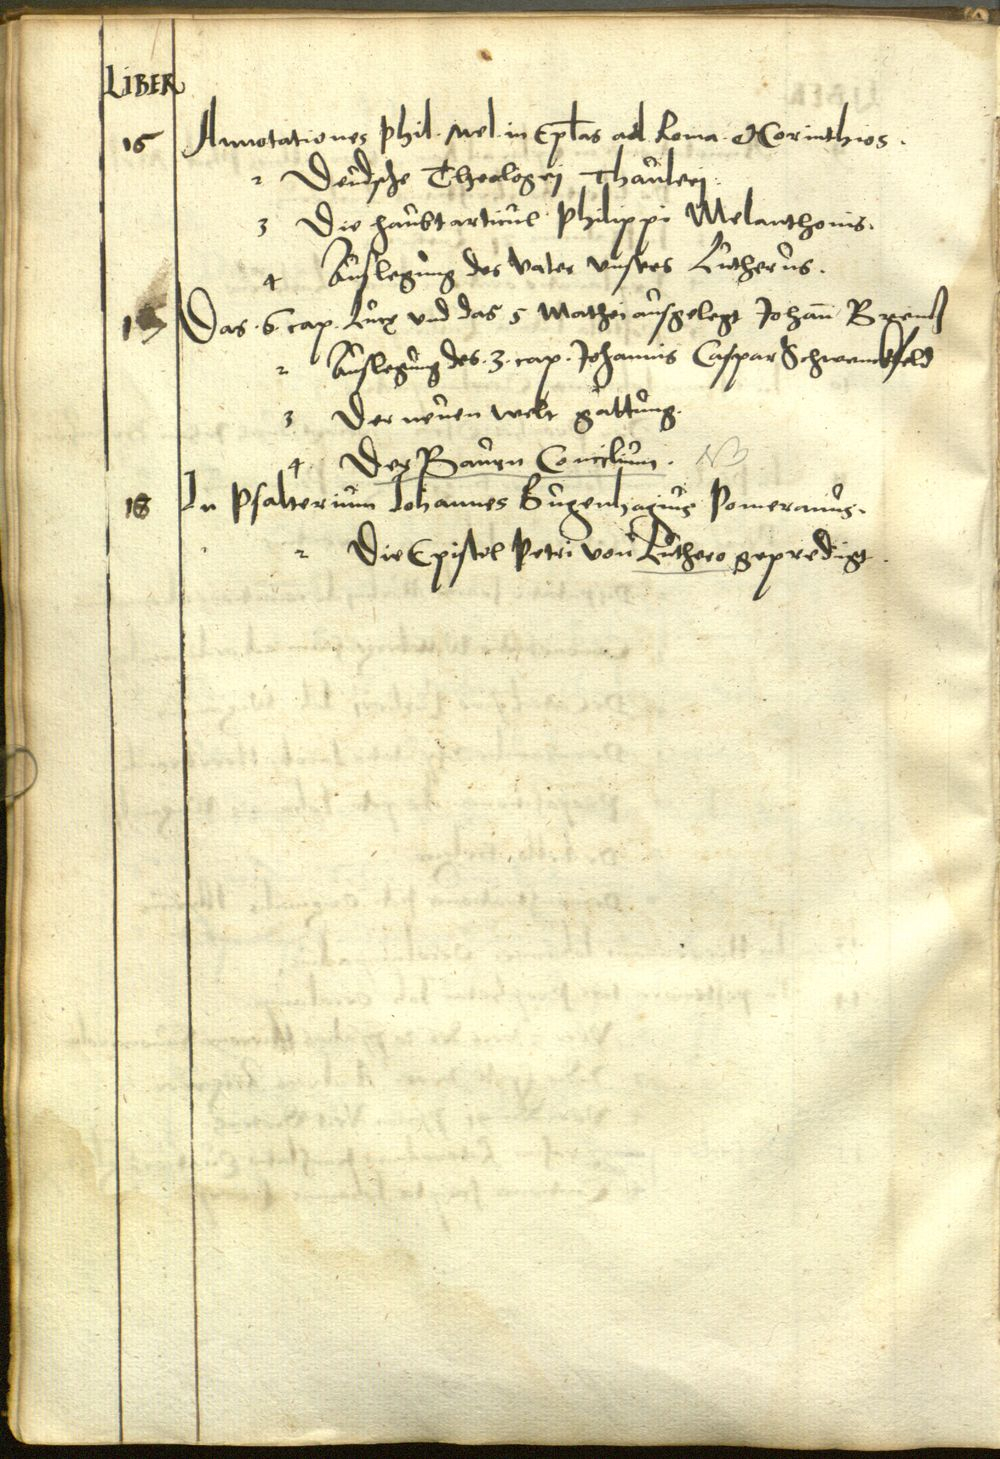 LIBER
16 Annotationes Phil. Mel. in Epl̄as ad Roma. & Corinthios.
2 Deudsche Theologej Thaulerj.
3 Die haubtarticul Philippi Melanthonis.
4 Auslegung des Vater vnsers Lutherus.
17 Das .6. cap. Lucę vnd das 5 Mathei ausgelegt Johan̄ Brentz
2 Auslegung des .3. cap. Johannis Caspar Schwenckfeld
3 Der neuen welt gattung.
4 Der Baurn Concilium. NB
18 In Psalterium Iohannes Bugenhagius Pomeranus.
2 Die Epistel Petri von Luthero gepredigt.